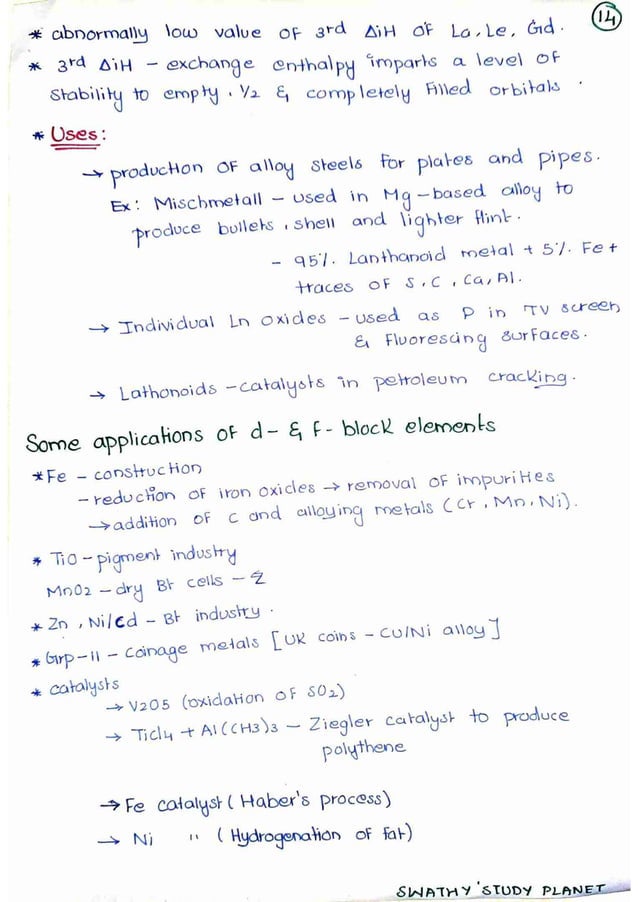 14
* abnormally low value of 3rd ΔiH of La, Le, Gd.
* 3rd ΔiH - exchange enthalpy imparts a level of
stability to empty, 1/2 & completely filled orbitals.
* Uses:
→ production of alloy steels for plates and pipes.
Ex: Mischmetall - used in Mg-based alloy to
produce bullets, shell and lighter flint.
- 95% Lanthanoid metal + 5% Fe +
traces of S, C, Ca, Al.
→ Individual Ln oxides - used as P in TV screen
& fluorescing surfaces.
→ Lathonoids - catalysts in petroleum cracking.
Some applications of d- & f- block elements
* Fe - construction
- reduction of iron oxides → removal of impurities
→ addition of C and alloying metals (Cr, Mn, Ni).
* TiO - pigment industry
MnO2 - dry Bt cells - Z
* Zn, Ni/Cd - Bt industry.
* Grp-11 - coinage metals [UK coins - Cu/Ni alloy]
* catalysts
→ V2O5 (oxidation of SO2)
→ Ticl4 + Al(CH3)3 - Ziegler catalyst to produce
polythene
→ Fe catalyst (Haber's process)
→ Ni " (Hydrogenation of fat)
SWATHY'STUDY PLANET